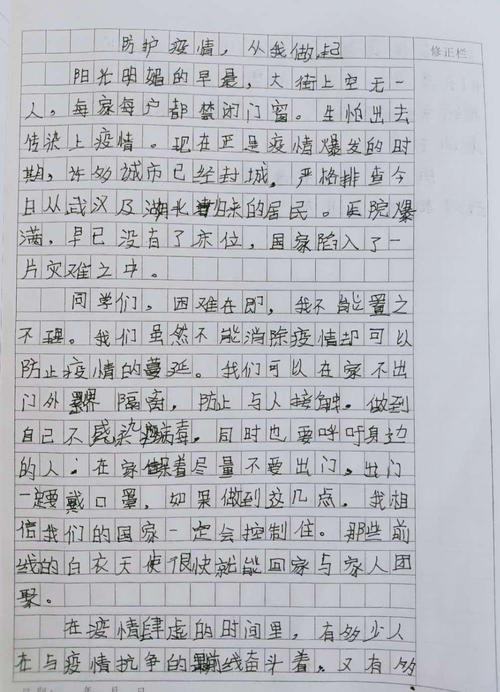 防护疫情，从我做起
修正栏
阳光明媚的早晨，大街上空无一
人，每家每户都禁闭门窗。生怕出去
传染上疫情。现在正是疫情爆发的时
期，许多城市已经封城，严格排查今
日从武汉及湖北归来的居民。医院爆
满，早已没有了床位，国家陷入了一
片灾难之中。
同学们，困难在即，我不能置之
不理。我们虽然不能消除疫情却可以
防止疫情的蔓延。我们可以在家不出
门外界隔离，防止与人接触。做到
自己不感染病毒。同时也要呼吁身边
的人：在家待着尽量不要出门。出门
一定要戴口罩，如果做到这几点。我相
信我们的国家一定会控制住。那些前
线的白衣天使很快就能回家与家人团
聚。
在疫情肆虐的时间里，有多少人
在与疫情抗争的前线奋斗着，又有多
年 月 日